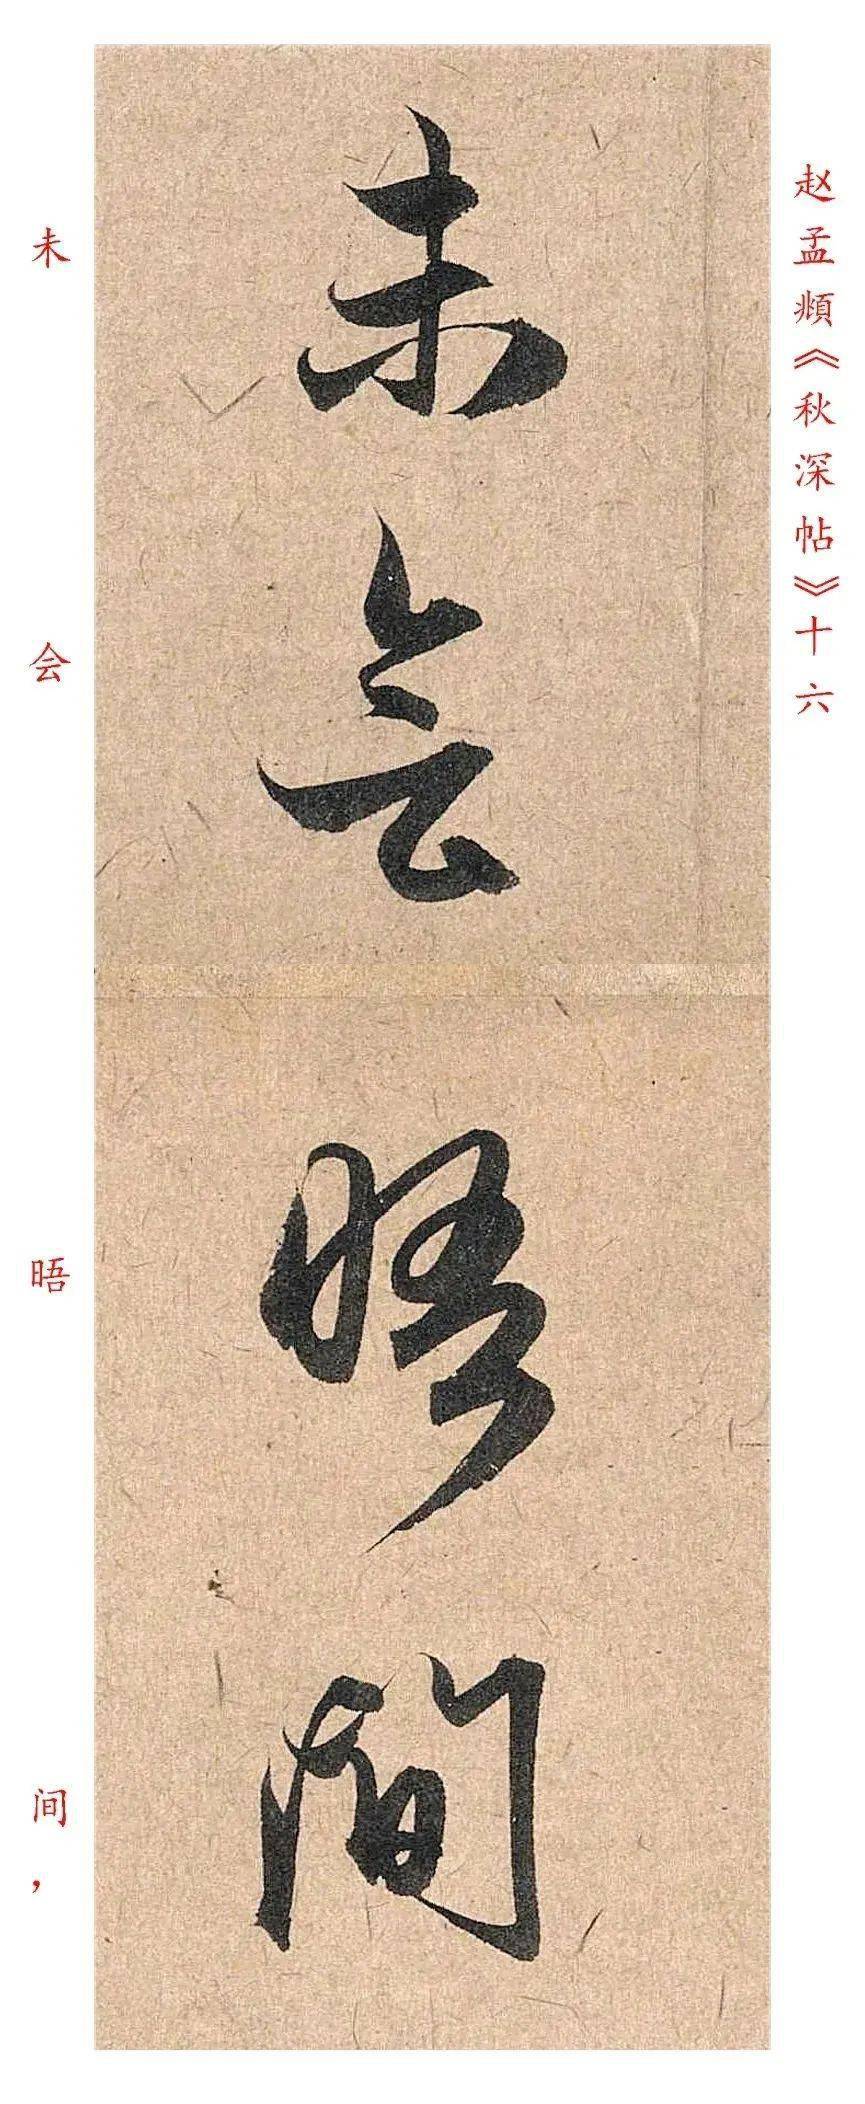 赵孟頫《秋深帖》十六
未会晤间
未会晤间，